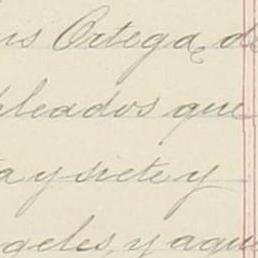 us Ortega, de
pleados que
ta y siete y
ngeles, y aqui